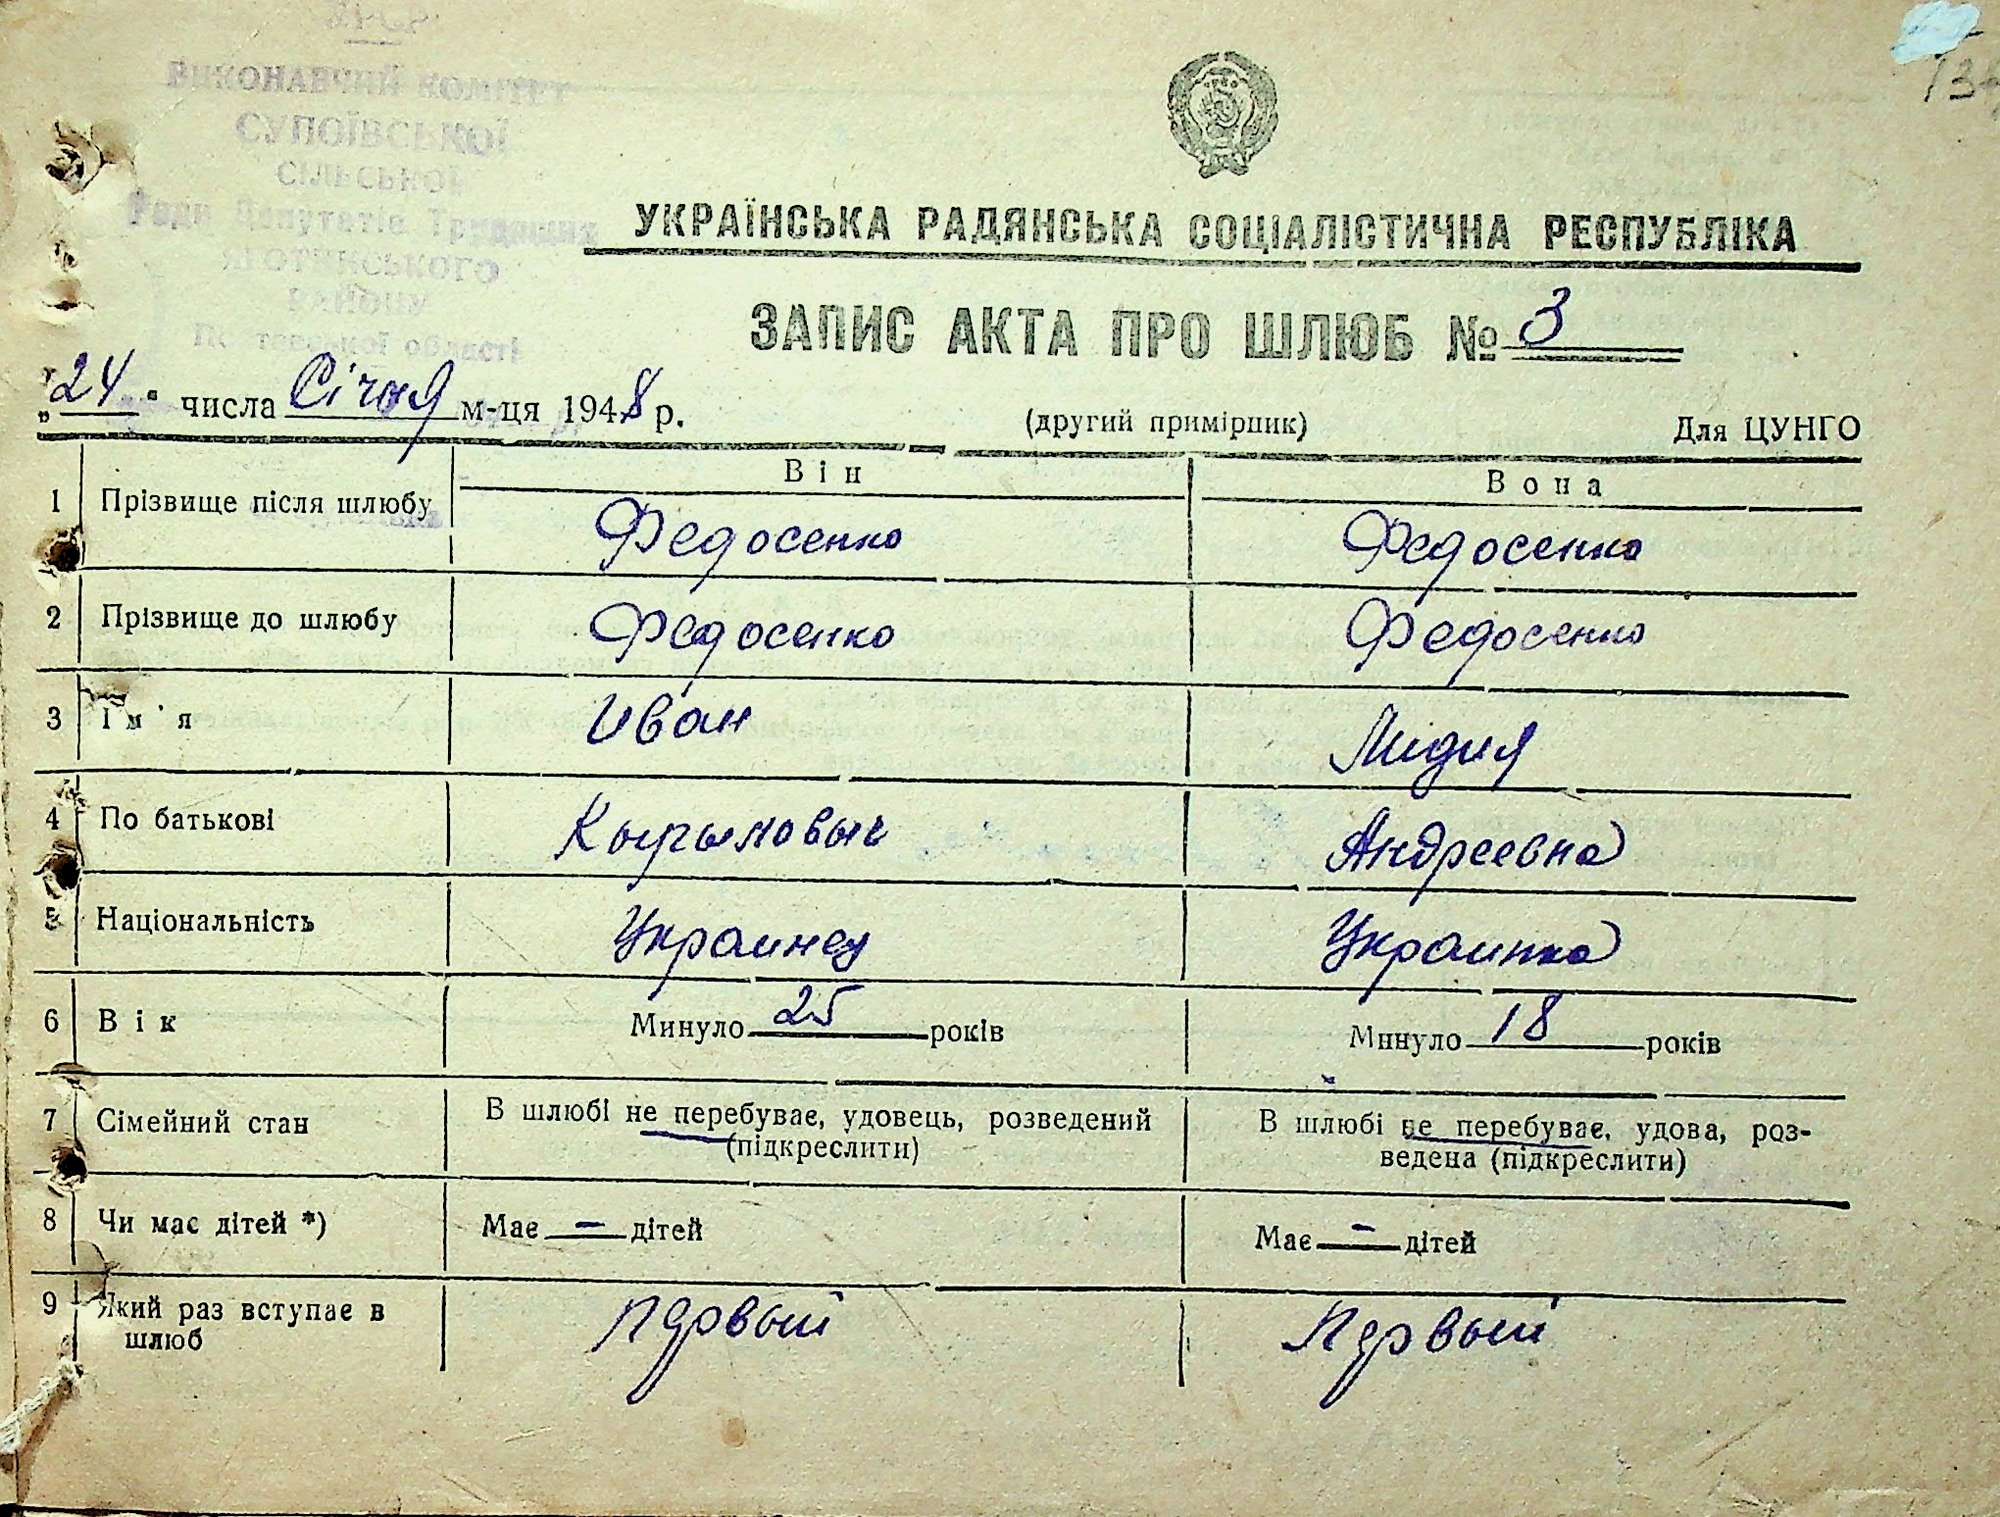 УРСР
ВИКОНАВЧИЙ КОМІТЕТ
СУПОЇВСЬКОЇ
СІЛЬСЬКОЇ
Ради Депутатів Трудящих
ЯГОТИНСЬКОГО
РАЙОНУ
Полтавської області
УКРАЇНСЬКА РАДЯНСЬКА СОЦІАЛІСТИЧНА РЕСПУБЛІКА
ЗАПИС АКТА ПРО ШЛЮБ № 3
„24" числа Січня м-ця 1948 р.
(другий примірник) Для ЦУНГО
Він Вона
1 Прізвище після шлюбу Федосенко Федосенко
2 Прізвище до шлюбу Федосенко Федосенко
3 Ім'я Иван Лидия
4 По батькові Кырылович Андреевна
5 Національність Украинец Украинка
6 Вік Минуло 25 років Минуло 18 років
7 Сімейний стан В шлюбі не перебуває, удовець, розведений В шлюбі не перебуває, удова, роз-
(підкреслити) ведена (підкреслити)
8 Чи має дітей *) Має – дітей Має – дітей
9 Який раз вступає в первый первый
шлюб